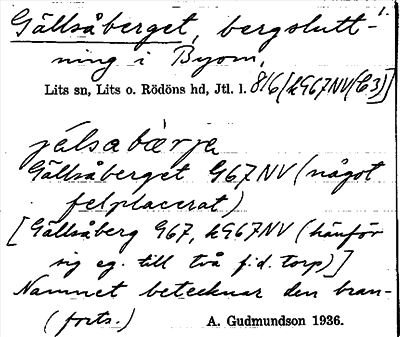 Gällsåberget, bergslutt- 1.
ning i Byom,
Lits sn, Lits o. Rödöns hd, Jtl. l. 816 [k967NV(C3)]
jálsabærje
Gällsåberget 967NV (något
felplacerat)
[Gällsåberg 967, k967NV (hänför
sig eg. till två f.d. torp)]
Namnet betecknar den bran-
(forts.) A. Gudmundson 1936.